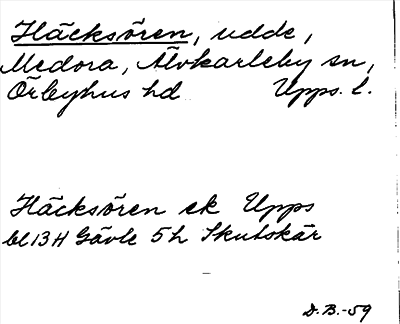 Häcksören, udde,
Medora, Älvkarleby sn,
Örbyhus hd Upps. l.
Häcksören ek Upps
bl 13 H Gävle 5 h Skutskär
D.B.-59